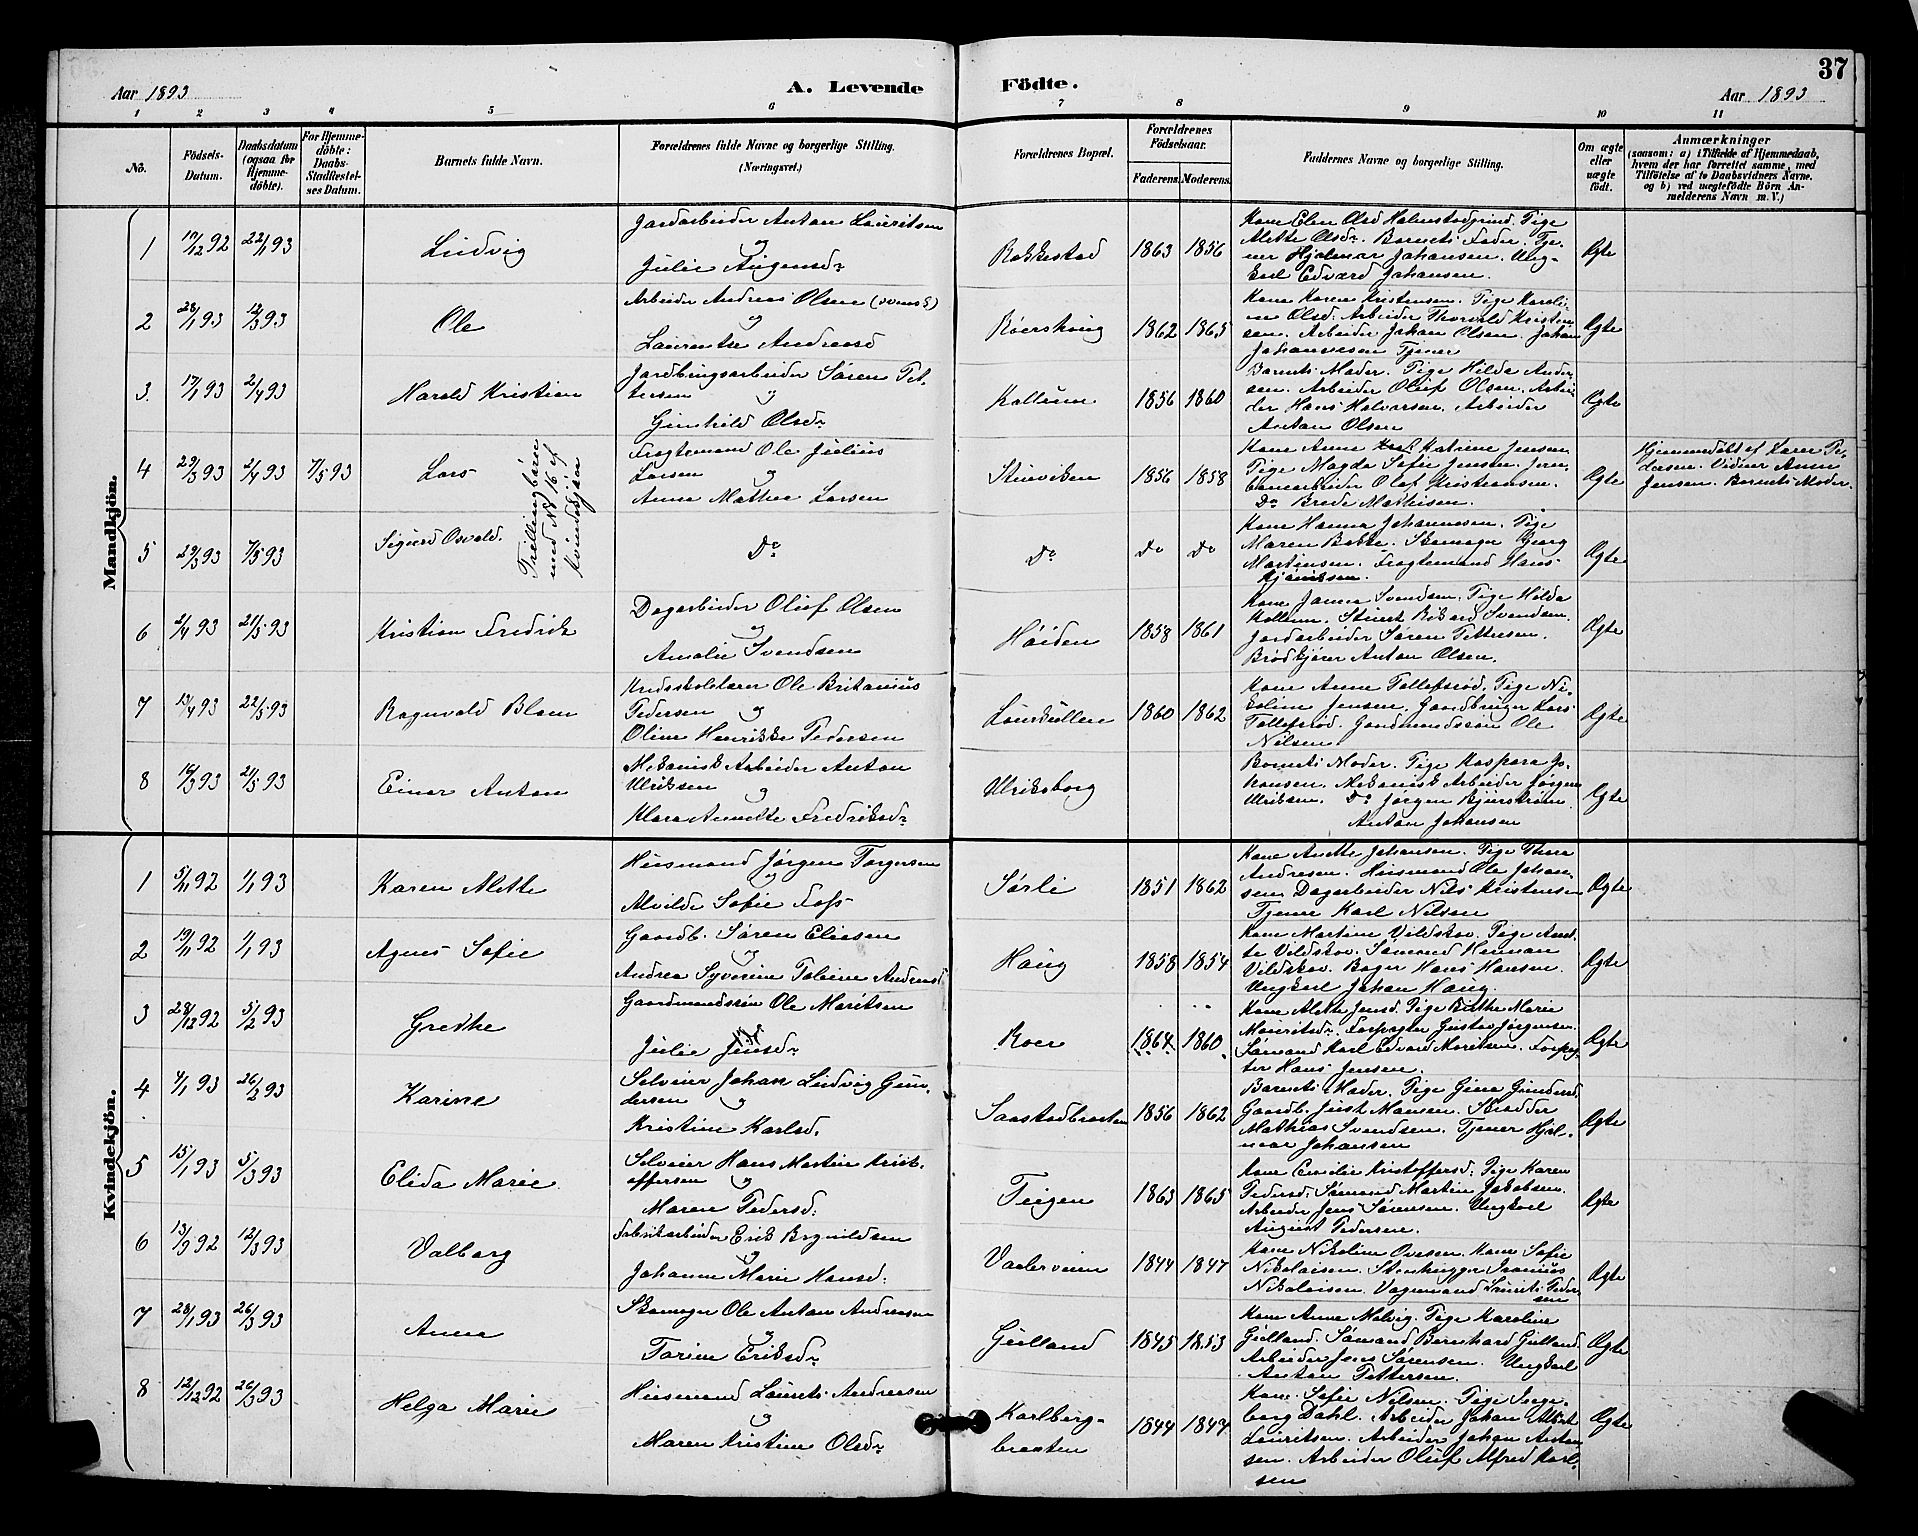 37
Aar 1893
A. Levende
Födte.
Aar 1893
1 2 3 4 5 6 7 8 9 10 11
No.
Födsels-Datum.
Daabsdatum (ogsaa for Hjemmedöbte).
For Hjemmedöbte: Daabs-Stadfæstelses Datum.
Barnets fulde Navn.
Forældrenes fulde Navne og borgerlige Stilling.
(Næringsvei.)
Forældrenes Bopæl.
Forældrenes Födselsaar.
Faderens. Moderens.
Faddernes Navne og borgerlige Stilling.
Om ægte eller uægte födt.
Anmærkninger
(saasom: a) i Tilfælde af Hjemmedaab, hvem der har forrettet samme, med Tilföielse af to Daabsvidners Navne, og b) ved uægtefödte Börn Anmelderens Navn m. V.)
Mandkjön.
1 17/12 92 22/1 93 Ludvig
Jordarbeider Anton Lauritsen
og
Julie Augensdr
Rakkestad 1863 1856
Kone Elen Olsd Halmstadgrind. Pige
Mette Olsdr. Barnets Fader. Tje-
ner Hjalmar Johansen. Ung-
karl Edvard Johansen.
Ægte
2 28/1 93 12/3 93 Ole
Arbeider Andreas Olsen (svensk)
og
Laurentse Andreasd
Röershaug 1862 1865
Kone Karen Kristensen. Pige Karoli-
ne Olsd. Arbeider Thorvald Kristen-
sen. Arbeider Johan Olsen. Johan
Johannesen Tjener
Ægte
3 17/1 93 2/4 93 Harald Kristian
Jordbrugsarbeider Sören Pet-
tersen og
Gunhild Olsdr
Kollum 1856 1860
Barnets Moder. Pige Hilda Ander-
sen. Arbeider Oluf Olsen. Arbei-
der Hans Halvorsen. Arbeider
Anton Olsen
Ægte
4 29/3 93 2/4 93 7/5 93 Lars
Trillingbörn
med No 16 af
Kvindekjön
Fragtemand Ole Julius
Larsen og
Anna Mathea Larsen
Stenviken 1856 1858
Kone Anne Katrine Jensen
Pige Magda Sofie Jensen. Jern-
banearbeider Olaf Kristiansen.
Do Brede Mathisen.
Ægte
Hjemmedöbt af Karen Pe-
dersen. Vidner Anne
Jensen. Barnets Moder.
5 29/3 93 7/5 93 Sigurd Osvald.
Do Do Do Do
Kone Hanna Johannesen. Pige
Maren Bakke. Skomager Georg
Martinsen. Fragtemand Hans
Ægte
6 2/4 93 21/5 93 Kristian Fredrik
Dagarbeider Oluf Olsen
og
Amalie Svendsen
Höiden 1858 1861
Kone Janna Svendsen. Pige Hilda
Kollum. Rikard Svendsen.
Jordarbeider Sören Pettersen.
Brödkjörer Anton Olsen.
Ægte
7 13/4 93 22/5 93 Ragnvald Blom
Kredsskolelærer Ole Britanius
Pedersen og
Oline Henrikke Pedersen
Lauskullen 1860 1862
Kone Anne Tollefsröd. Pige Ni-
koline Jensen. Gaardbruger Lars
Tollefsröd. Gaardmandssön Ole
Nilsen
Ægte
8 16/3 93 21/5 93 Einar Anton
Mekanisk Arbeider Anton
Ulriksen og
Klara Annette Fredriksdr
Ulriksborg
Barnets Moder. Pige Kaspara Jo-
hansen. Mekanisk Arbeider Jörgen
Ulriksen. Do Jörgen Bjurström.
Anton Johansen
Ægte
Kvindekjön.
1 5/11 92 1/1 93 Karen Mette
Husmand Jörgen Torgersen
og
Alvilde Sofie Foss
Sörli 1851 1862
Kone Anette Johansen. Pige Thea
Andresen. Husmand Ole Johan-
sen. Dagarbeider Nils Kristensen
Tjener Karl Nilsen
Ægte
2 19/11 92 1/1 93 Agnes Sofie
Gaardb. Sören Eliesen
og
Andrea Syverine Tobine Andreasd
Haug 1858 1854
Kone Martine Vildskov. Pige Anet-
te Vildskov. Sömand Herman
Vildskov. Bager Hans Hansen.
Ungkarl Johan Haug.
Ægte
3 28/12 92 5/2 93 Grethe
Gaardmandssön Ole Moritsen
Julie Jensdr
Roer 1864 1860
Kone Mette Jensd. Pige Bertha Marie
Mauritsdr. Forpagter Gustav Jörgensen.
Sömand Karl Edvard Moritsen. Forpag-
ter Hans Jensen.
Ægte
4 7/1 93 26/2 93 Karine
Selveier Johan Ludvig Gun-
dersen og
Kristine Karlsd.
Saastadbraaten 1856 1862
Barnets Moder. Pige Gina Gundersd.
Gaardb. Just Hansen.
Mathias Svendsen. Tjener Hjal-
mar Johansen
Ægte
5 15/1 93 5/3 93 Elida Marie
Selveier Hans Martin Krist-
offersen og
Maren Pedersd.
Teigen 1863 1865
Kone Emilie Kristoffersd. Pige Karen
Pedersd. Sömand Martin Jakobsen.
Arbeider Jens Sörensen. Ungkarl
August Pedersen.
Ægte
6 13/9 92 12/3 93 Valborg
Fabrikarbeider Erik Brynildsen
og
Johanne Marie Hansd.
Vaalerveien 1844 1847
Kone Nikoline Ovesen. Kone Sofie
Nikolaisen. Stenhugger
Nikolaisen. Vognmand Laurits Peder-
sen
Ægte
7 28/1 93 26/3 93 Anna
Skomager Ole Anton Andreasen
og
Torine Eriksdr
Gulland 1845 1853
Kone Anne Melvig. Pige Karoline
Gulland. Sömand Bernhard Gulland.
Arbeider Jens Sörensen. Ungkarl
Anton Pettersen.
Ægte
8 12/12 92 26/3 93 Helga Marie
Husmand Laurits Andreasen
og
Maren Kristine Olsdr
Karlberg-
braaten 1844 1847
Kone Sofie Nilsen. Pige Inge-
borg Dahl. Arbeider Johan Albert
Lauritsen. Arbeider Johan Anton-
sen. Arbeider Oluf Alfred Karl-
sen
Ægte